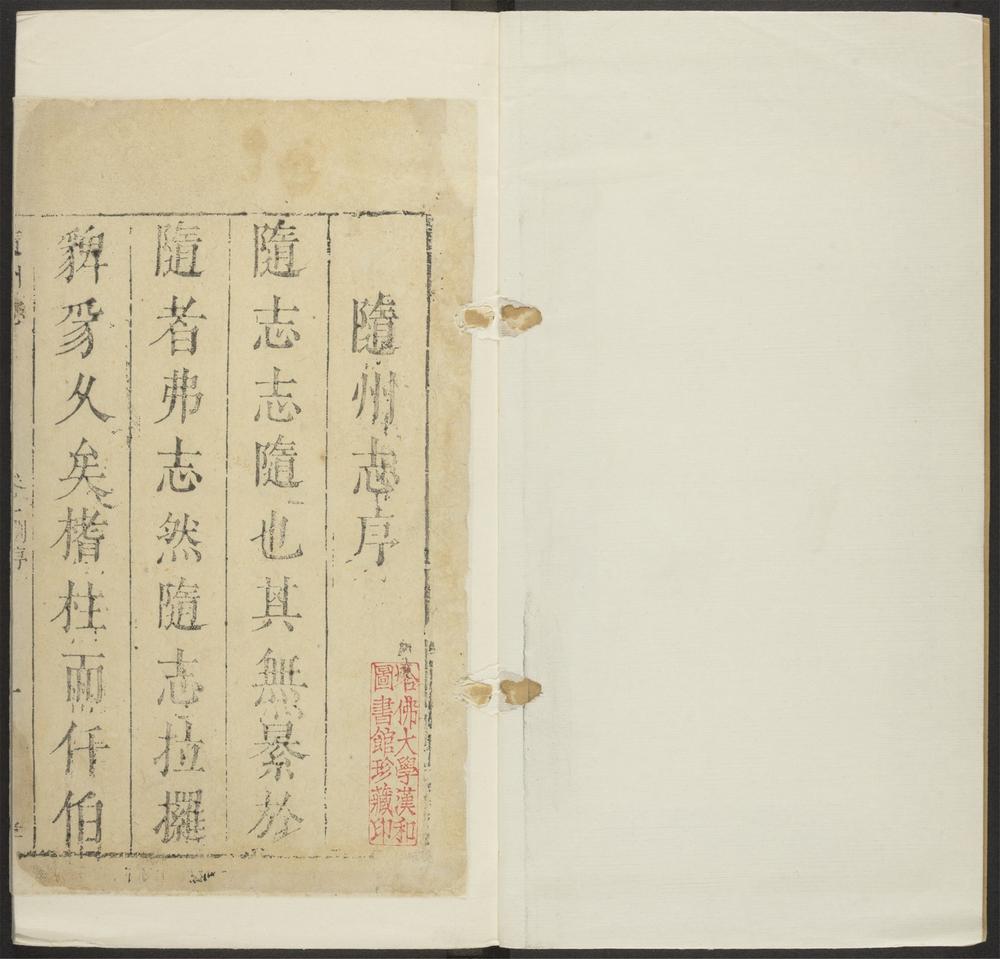 隨州志序
隨志志隨也其無㬥於
隨者弗志然隨志拉擺
久矣稽柱而仟伯
哈佛大學漢和
圖書館珍藏印